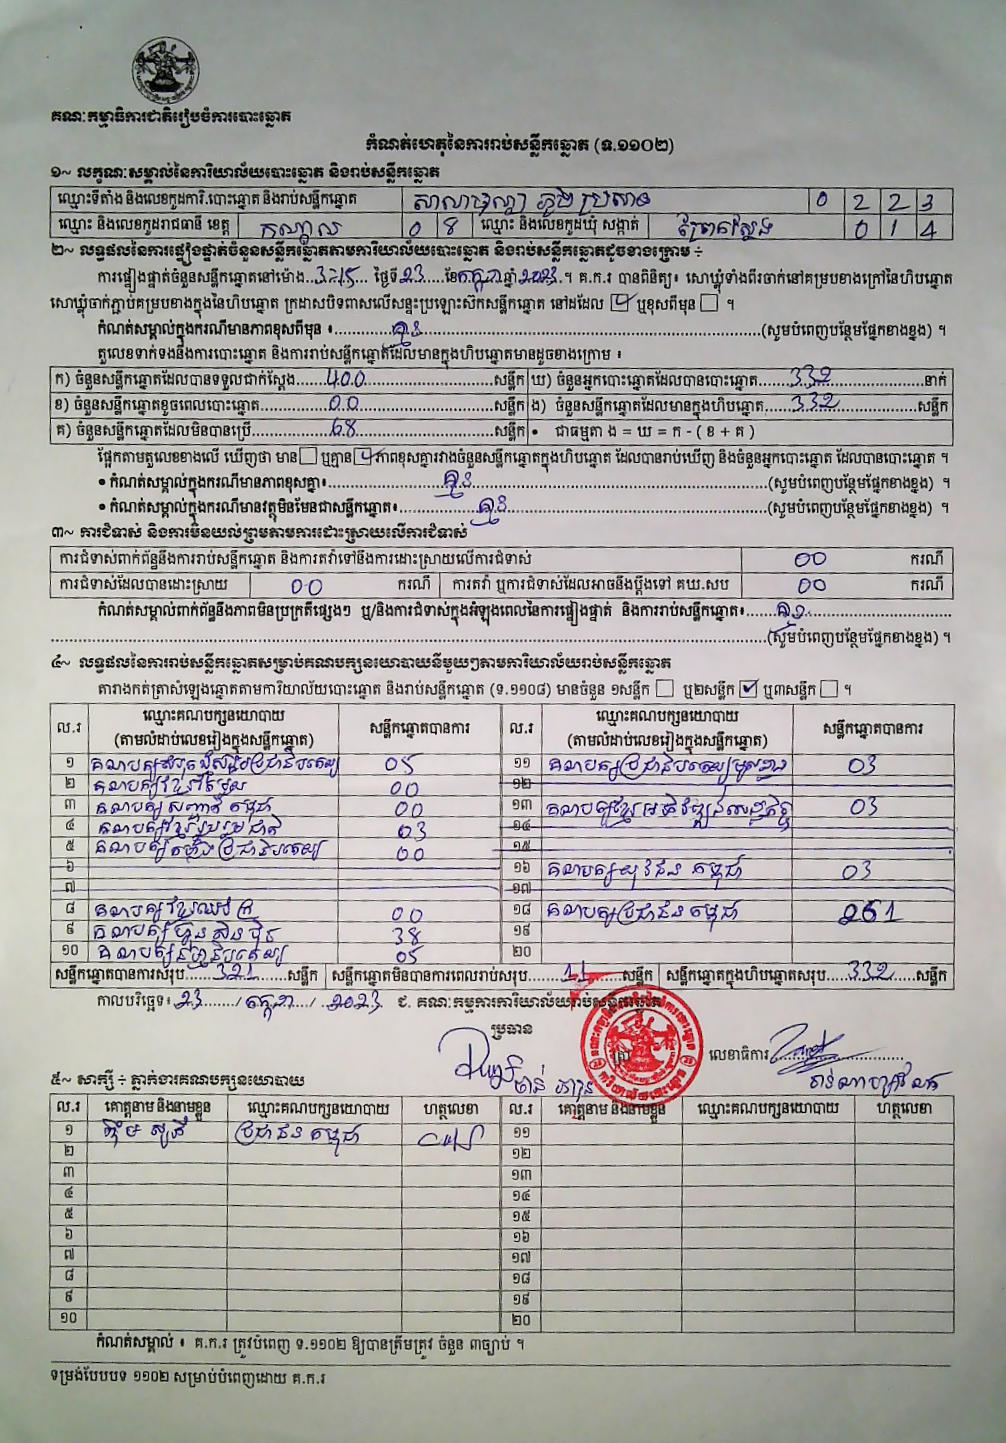 គណៈកម្មាធិការជាតិរៀបចំការបោះឆ្នោត
កំណត់ហេតុនៃការរាប់សន្លឹកឆ្នោត (ទ.១១០២)
១~ លក្ខណៈសម្គាល់នៃការិយាល័យបោះឆ្នោត និងរាប់សន្លឹកឆ្នោត
ឈ្មោះទីតាំង និងលេខកូដការិ.បោះឆ្នោត និងរាប់សន្លឹកឆ្នោត សាលាបុណ្យ ភូមិ ប្រសាទ 0 2 2 3
ឈ្មោះ និងលេខកូដរាជធានី ខេត្ត កណ្តាល 0 8 ឈ្មោះ និងលេខកូដឃុំ សង្កាត់ ព្រែកស្លែង 0 1 4
២~ លទ្ធផលនៃការផ្ទៀងផ្ទាត់ចំនួនសន្លឹកឆ្នោតតាមការិយាល័យបោះឆ្នោត និងរាប់សន្លឹកឆ្នោតដូចខាងក្រោម ÷
ការផ្ទៀងផ្ទាត់ចំនួនសន្លឹកឆ្នោតនៅម៉ោង 3:15 ថ្ងៃទី 23 ខែ កក្កដា ឆ្នាំ 2023 ។ គ.ក.រ បានពិនិត្យ៖ សោឃ្លុំទាំងពីរចាក់នៅគម្របខាងក្រៅនៃហិបឆ្នោត
សោឃ្លុំចាក់ភ្ជាប់គម្របខាងក្នុងនៃហិបឆ្នោត ក្រដាសបិទពាសលើសន្ទះប្រឡោះស៊កសន្លឹកឆ្នោត នៅដដែល ☑ ឬខុសពីមុន ☐ ។
កំណត់សម្គាល់ក្នុងករណីមានភាពខុសពីមុន ៖ គ្មាន (សូមបំពេញបន្ថែមផ្នែកខាងខ្នង) ។
តួលេខទាក់ទងនឹងការបោះឆ្នោត និងការរាប់សន្លឹកឆ្នោតដែលមានក្នុងហិបឆ្នោតមានដូចខាងក្រោម ៖
ក) ចំនួនសន្លឹកឆ្នោតដែលបានទទួលជាក់ស្តែង 400 សន្លឹក ឃ) ចំនួនអ្នកបោះឆ្នោតដែលបានបោះឆ្នោត 332 នាក់
ខ) ចំនួនសន្លឹកឆ្នោតខូចពេលបោះឆ្នោត 00 សន្លឹក ង) ចំនួនសន្លឹកឆ្នោតដែលមានក្នុងហិបឆ្នោត 332 សន្លឹក
គ) ចំនួនសន្លឹកឆ្នោតដែលមិនបានប្រើ 68 សន្លឹក • ជាធម្មតា ង = ឃ = ក - ( ខ + គ )
ផ្អែកតាមតួលេខខាងលើ ឃើញថា មាន ☐ ឬគ្មាន ☑ ភាពខុសគ្នារវាងចំនួនសន្លឹកឆ្នោតក្នុងហិបឆ្នោត ដែលបានរាប់ឃើញ និងចំនួនអ្នកបោះឆ្នោត ដែលបានបោះឆ្នោត ។
• កំណត់សម្គាល់ក្នុងករណីមានភាពខុសគ្នា៖ គ្មាន (សូមបំពេញបន្ថែមផ្នែកខាងខ្នង) ។
• កំណត់សម្គាល់ក្នុងករណីមានវត្ថុមិនមែនជាសន្លឹកឆ្នោត៖ គ្មាន (សូមបំពេញបន្ថែមផ្នែកខាងខ្នង) ។
៣~ ការជំទាស់ និងការមិនយល់ព្រមតាមការដោះស្រាយលើការជំទាស់
ការជំទាស់ពាក់ព័ន្ធនឹងការរាប់សន្លឹកឆ្នោត និងការតវ៉ាទៅនឹងការដោះស្រាយលើការជំទាស់ 00 ករណី
ការជំទាស់ដែលបានដោះស្រាយ 00 ករណី ការតវ៉ា ឬការជំទាស់ដែលអាចនឹងប្តឹងទៅ គឃ.សប 00 ករណី
កំណត់សម្គាល់ពាក់ព័ន្ធនឹងភាពមិនប្រក្រតីផ្សេងៗ ឬ/និងការជំទាស់ក្នុងអំឡុងពេលនៃការផ្ទៀងផ្ទាត់ និងការរាប់សន្លឹកឆ្នោត៖ គ្មាន
(សូមបំពេញបន្ថែមផ្នែកខាងខ្នង) ។
៤~ លទ្ធផលនៃការរាប់សន្លឹកឆ្នោតសម្រាប់គណបក្សនយោបាយនីមួយៗតាមការិយាល័យរាប់សន្លឹកឆ្នោត
តារាងកត់ត្រាសំឡេងឆ្នោតតាមការិយាល័យបោះឆ្នោត និងរាប់សន្លឹកឆ្នោត (ទ.១១០៨) មានចំនួន ១សន្លឹក ☐ ឬ២សន្លឹក ☑ ឬ៣សន្លឹក ☐ ។
ល.រ ឈ្មោះគណបក្សនយោបាយ (តាមលំដាប់លេខរៀងក្នុងសន្លឹកឆ្នោត) សន្លឹកឆ្នោតបានការ ល.រ ឈ្មោះគណបក្សនយោបាយ (តាមលំដាប់លេខរៀងក្នុងសន្លឹកឆ្នោត) សន្លឹកឆ្នោតបានការ
១ គណបក្ស ប្រជាធិបតេយ្យ 05 ១១ គណបក្សប្រជាធិបតេយ្យមូលដ្ឋាន 03
២ គណបក្សខ្មែរតែមួយ 00
៣ គណបក្ស សញ្ជាតិ កម្ពុជា 00 ១៣ គណបក្សខ្មែរអភិវឌ្ឍន៍សេដ្ឋកិច្ច 03
៤ គណបក្សខ្មែររួបរួមជាតិ 03 ១៤
៥ គណបក្ស ប្រជាធិបតេយ្យ 00 ១៥
៦ ១៦ គណបក្សយុវជន កម្ពុជា 03
៧ ១៧
៨ គណបក្សខ្មែរឈប់ក្រ 00 ១៨ គណបក្សប្រជាជន កម្ពុជា 261
៩ គណបក្ស ហ៊្វុនស៊ិនប៉ិច 38 ១៩
១០ គណបក្សធម្មាធិបតេយ្យ 05 ២០
សន្លឹកឆ្នោតបានការសរុប 321 សន្លឹក សន្លឹកឆ្នោតមិនបានការពេលរាប់សរុប 11 សន្លឹក សន្លឹកឆ្នោតក្នុងហិបឆ្នោតសរុប 332 សន្លឹក
កាលបរិច្ឆេទ៖ 23 / កក្កដា / 2023 ជ. គណៈកម្មការការិយាល័យរាប់សន្លឹកឆ្នោត
ប្រធាន លេខាធិការ
៥~ សាក្សី ÷ ភ្នាក់ងារគណបក្សនយោបាយ
ល.រ គោត្តនាម និងនាមខ្លួន ឈ្មោះគណបក្សនយោបាយ ហត្ថលេខា ល.រ គោត្តនាម និងនាមខ្លួន ឈ្មោះគណបក្សនយោបាយ ហត្ថលេខា
១ ប្រជាជន កម្ពុជា ១១
២ ១២
៣ ១៣
៤ ១៤
៥ ១៥
៦ ១៦
៧ ១៧
៨ ១៨
៩ ១៩
១០ ២០
កំណត់សម្គាល់ ៖ គ.ក.រ ត្រូវបំពេញ ទ.១១០២ ឱ្យបានត្រឹមត្រូវ ចំនួន ៣ច្បាប់ ។
ទម្រង់បែបបទ ១១០២ សម្រាប់បំពេញដោយ គ.ក.រ